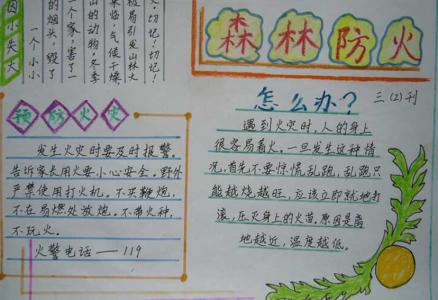 因小失大
一个小小
的烟头,毁了
一个家,害了
山的动物,冬季
来临,气候干燥
极易引发山林火
切记!切记!
森林防火
预防火灾
发生火灾时要及时报警。
告诉家长用火要小心安全。野外
严禁使用打火机,不买鞭炮,
不在易燃处放炮。不带火种,
不玩火。
火警电话——119
怎么办?
三(2)刊
遇到火灾时,人的身上
很容易着火,一旦发生这种情
况,首先不要惊慌乱跑,乱跑只
能越烧越旺,应该立即就地打
滚,压灭身上的火苗,原因是离
地越近,温度越低。